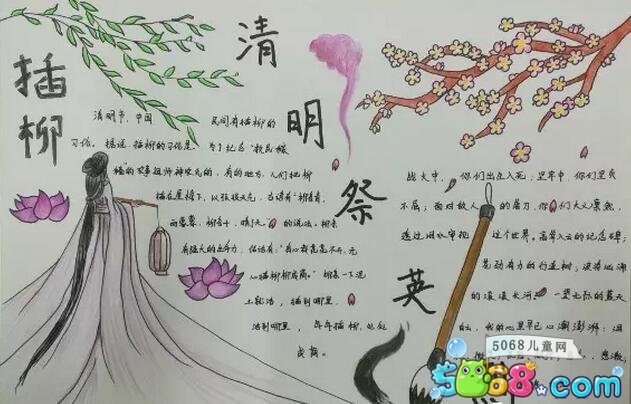 插柳
清明祭英
清明节,中国民间有插柳的
习俗。据说插柳的习俗是为了纪念"教民稼
穑"的农事祖师神农氏的,有的地方,人们把柳
枝插在屋檐下,以预报天气,古谚有"柳条青,
雨蒙蒙;柳条干,晴了天"的说法。柳条
有强大的生命力,俗话有:"有心栽花花不开,无
心插柳柳成荫。"柳条一下泥
土就活,插到哪里,
活到哪里,年年插柳,处处
成荫。
战火中,你们出生入死;牢牢中,你们坚贞
不屈;面对敌人的屠刀,你们大义凛然,
透过泪水审视这个世界,高耸入云的纪念碑;
苍劲有力的行道树;波涛汹涌
的滚滚长河;一望无际的蓝天
我的心里早已心潮澎湃:泪
5068儿童网
5068.com